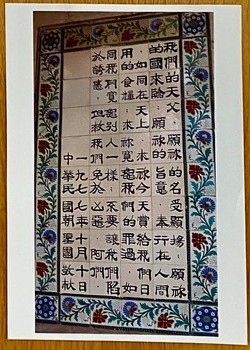 我們的天父，願祢的名受顯揚，願祢
的國來臨，願祢的旨意，奉行在人間
如同在天上，求祢今天賞給我們日
用的食糧，求祢寬恕我們的罪過，如
同我們寬恕別人一樣，不要讓我們陷
於誘惑，但救我們免於凶惡，阿們
一九七七年十月十日
中華民國朝聖團敬獻